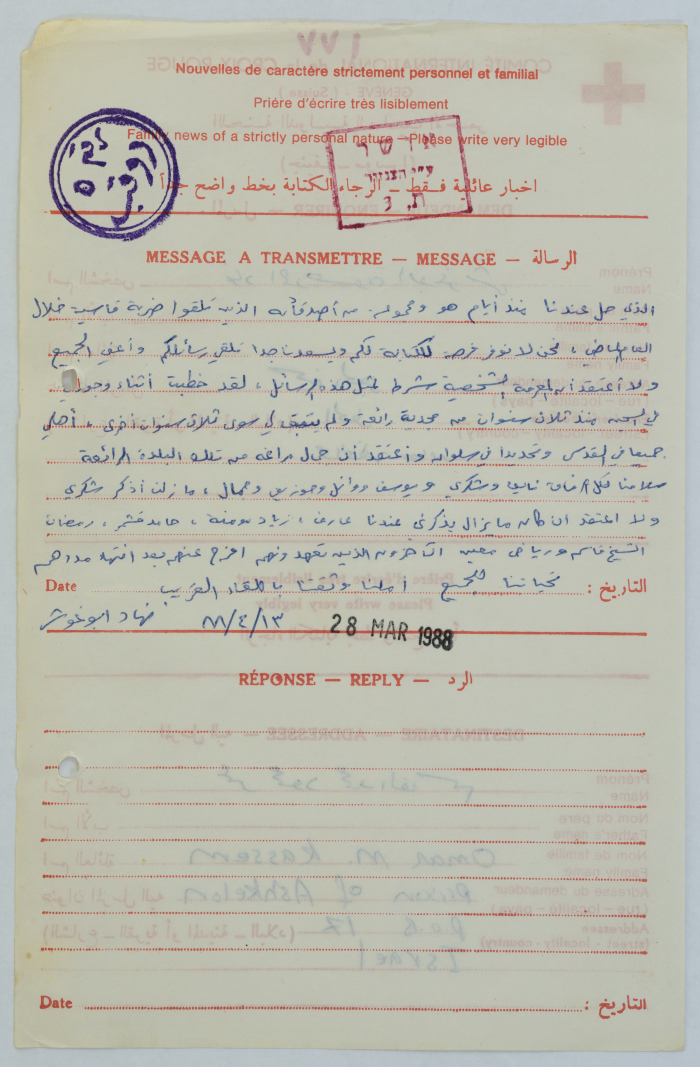 ١٧٧١
Nouvelles de caractére strictement personnel et familial
Priére d'écrire trés lisiblement
Family news of a strictly personal nature — Please write very legible
اخبار عائلية فـقـط — الرجاء الكتابة بخط واضح جداً
MESSAGE A TRANSMETTRE — MESSAGE — الرسالة
الذي حل عندنا منذ أيام هو ومجموعة من أصدقائه الذين تلقوا ضربة قاسية خلال
العام الماضي، نحن لا نوفر فرصة للكتابة لكم ويسعدنا جدا تلقي رسائلكم وأعني الجميع
ولا أعتقد أن المعرفة الشخصية شرط لمثل هذه الرسائل، لقد خطبت أثناء وجودي
في السجن منذ ثلاث سنوات من مجدية رائعة ولم يتبق لي سوى ثلاث سنوات أخرى، أهلي
جميعا في القدس وتحديدا في سلوان وأعتقد أن جمال مراغه من تلك البلدة الرائعة
سلامنا لكل الرفاق نايف وشكري ويوسف ووائل وفوزي وجمال، ما زلت أذكر شكري
ولا اعتقد ان كان ما يزال يذكرني عندنا عارف، زياد مومنة، حامد قشر، رمضان
الشيخ قاسم ورياض الآخرون الذين تعهدونهم افرج عنهم بعد انتهاء مددهم
Date تحياتنا للجميع أملنا وثقنا باللقاء القريب التاريخ :
٨٨/٤/١٣ نهاد ابو غوش
28 MAR 1988
RÉPONSE — REPLY — الرد
Date التاريخ :